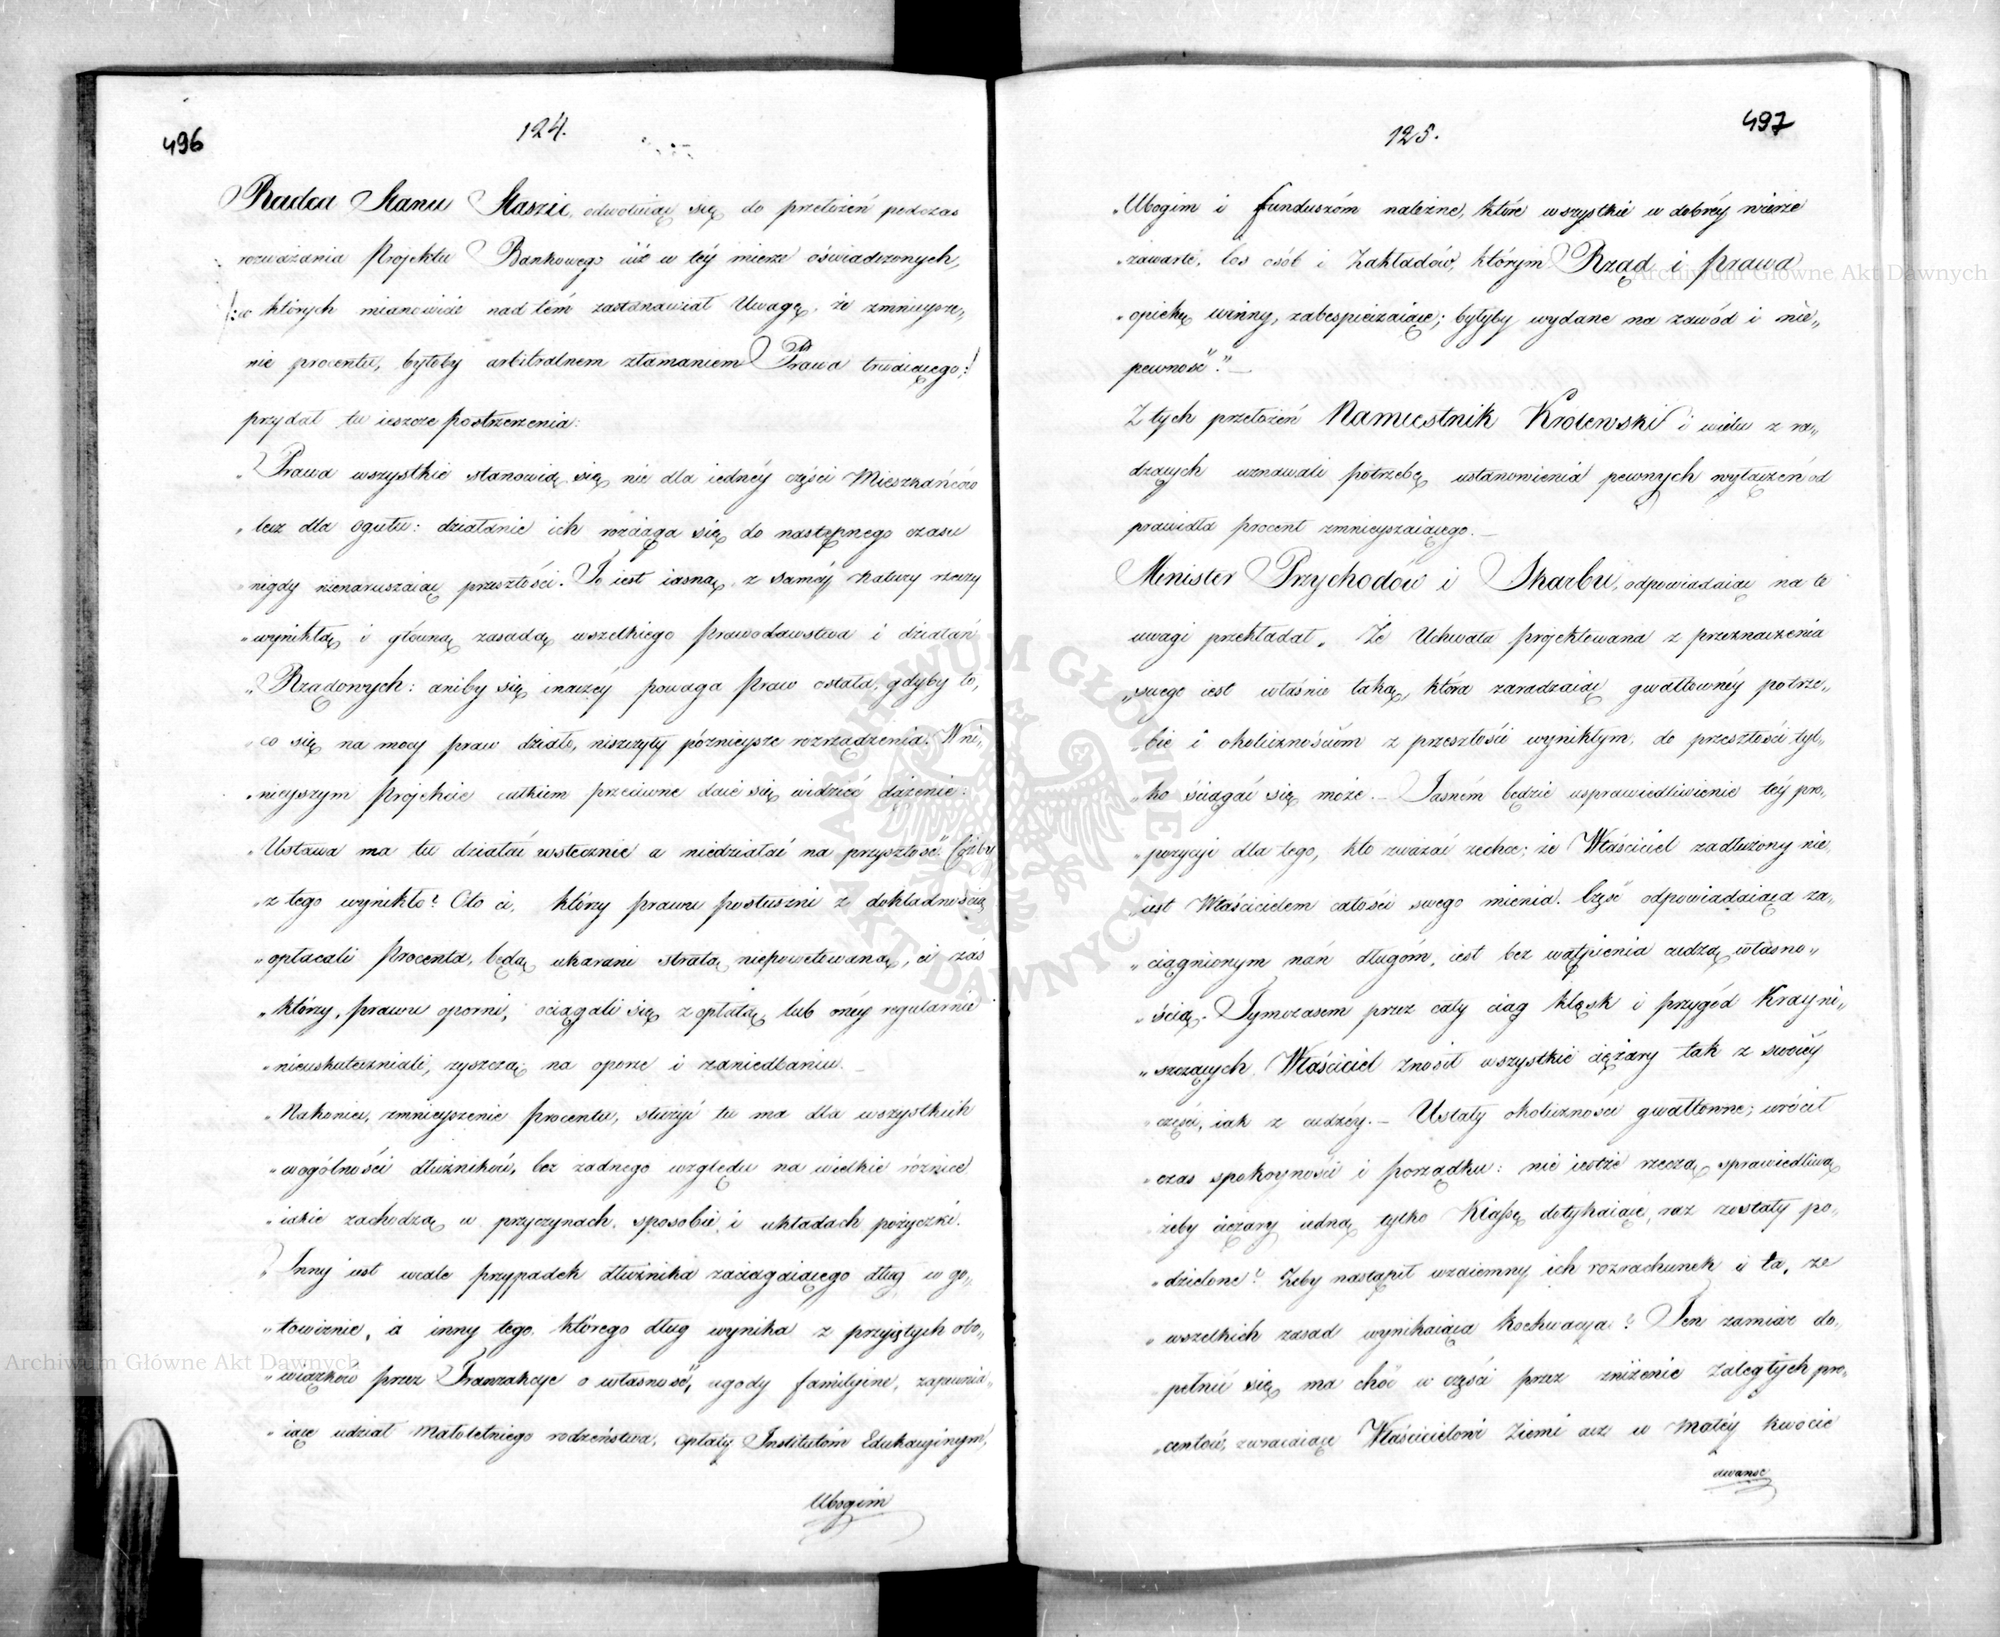 496
124.
Radca Stanu Staszic, odwołuiąc się do przełożeń podczas
rozważania Projektu Bankowego iuż w téy mierze oświadczonych,
/:w których mianowicie nad tém zastanawiał Uwagę, że zmnieysze„
nie procentu, byłoby arbitralnem złamaniem Prawa trwaiącego;/
przydał tu ieszcze postrzeżenia:
„Prawa wszystkie stanowią się nie dla iednéy części Mieszkańców
„lecz dla ogółu: działanie ich rozciąga się do następnego czasu
nigdy nienaruszaiąc przeszłości. To iest iasną, z saméy natury rzeczy
„wynikłą i główną zasadą wszelkiego prawodawstwa i działań
„Rządowych: aniby się inaczéy powaga Praw ostała, gdyby to,
„co się na mocy praw działo, niszczyły późnieysze rozrządzenia. W ni„
„nieyszym Projekcie całkiem przeciwne daie się widzieć dążenie:
„Ustawa ma tu działać wstecznie a niedziałać na przyszłość. Cóżby
„z tego wynikło? Oto ci, którzy prawu posłuszni z dokładnością
„opłacali Procenta, będą ukarani stratą niepowetowaną, ci zaś
„którzy, prawu oporni, ociągali się z opłatą lub onéy regularnie
„nieuskuteczniali, zyszczą na oporze i zaniedbaniu. _
„Nakoniec, zmnieyszenie procentu, służyć tu ma dla wszystkich
„wogólności dłużników, bez żadnego względu na wielkie różnice
„iakie zachodzą w przyczynach, sposobie i układach pożyczki.
„Inny iest wcale przypadek dłużnika zaciągaiącego dług w go„
„towiznie, a inny tego, którego dług wynika z przyiętych obo„
„wiązków przez Tranzakcye o własność, ugody familyine, zapewnia„
„iące udział małoletniego rodzeństwa, opłaty Institutóm Edukacyinym,
Ubogim
497
125.
„Ubogim i funduszóm należne, które wszystkie w dobréy wierze
„zawarte, los osób i Zakładów, którym Rząd i prawa
„opiekę winny, zabespieczaiące; byłyby wydane na zawód i nie„
pewność". _
Z tych przełożeń Namiestnik Królewski i wielu z ra„
dzących uznawali potrzebę ustanowienia pewnych wyłączeń od
prawidła procent zmnieyszaiącego. _
Minister Przychodów i Skarbu, odpowiadaiąc na te
uwagi przekładał, Że Uchwała projektowana z przeznaczenia
„swego iest właśnie taką, która zaradzaiąc gwałtownéy potrze„
„bie i okolicznościom z przeszłości wynikłym, do przeszłości tyl„
„ko ściągać się może. _ Jasném będzie usprawiedliwienie téy pro„
„pozycyi dla tego, kto zważać zechce; że Właściciel zadłużony nie
„iest Właścicielem całości swego mienia. Część odpowiadaiąca za„
„ciągnionym nań długóm, iest bez wątpienia cudzą własno„
„ścią. Tymczasem przez cały ciąg klęsk i przygód Kray ni„
„szczących, Właściciel znosił wszystkie ciężary tak z swoiéy
„części, iak z cudzéy. _ Ustały okoliczności gwałtowne; wrócił
„czas spokoyności i porządku: nie iestże rzeczą sprawiedliwą
żeby ciężary iedną tylko Klassę dotykaiące, raz zostały po„
„dzielone? Żeby nastąpił wzaiemny ich rozrachunek i ta, ze
„wszelkich zasad wynikaiąca bonifikacya? Ten zamiar do„
pełnić się ma choć w części przez zniżenie zaległych pro„
„centów, zwracaiące Właścicielowi Ziemi acz w małéy kwocie